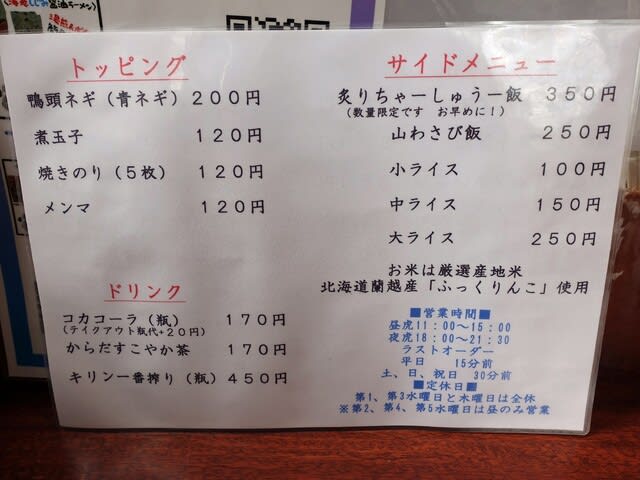 トッピング
鴨頭ネギ（青ネギ）200円
煮玉子 120円
焼きのり（5枚） 120円
メンマ 120円
ドリンク
コカコーラ（瓶） 170円
(テイクアウト瓶代+20円)
からだすこやか茶 170円
キリン一番搾り（瓶）450円
サイドメニュー
炙りちゃーしゅうー飯 350円
(数量限定です お早めに！)
山わさび飯 250円
小ライス 100円
中ライス 150円
大ライス 250円
お米は厳選産地米
北海道蘭越産「ふっくりんこ」使用
■営業時間■
昼虎11:00～15:00
夜虎18:00～21:30
ラストオーダー
平日 15分前
土、日、祝日 30分前
■定休日■
第1、第3水曜日と木曜日は全休
※第2、第4、第5水曜日は昼のみ営業